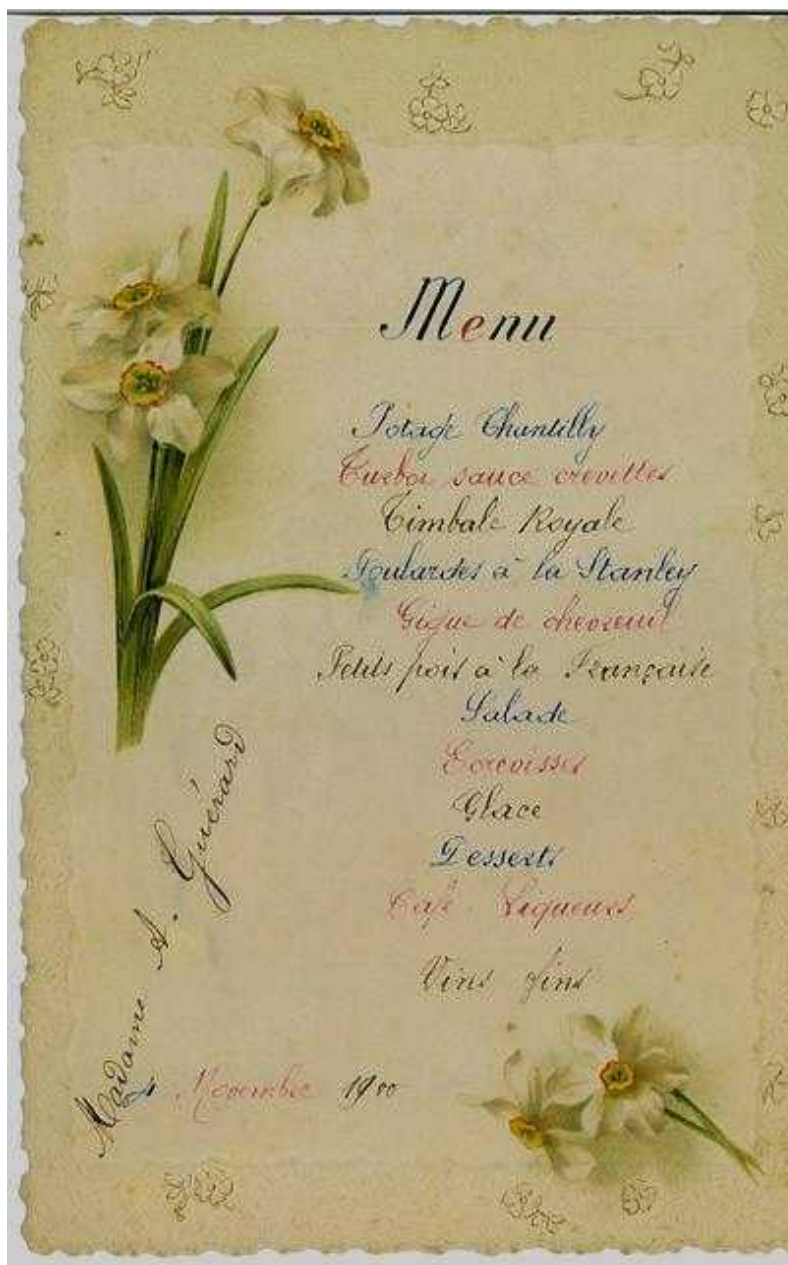 Menu
Potage Chantilly
Turbot sauce crevettes
Timbale Royale
Poulardes à la Stanley
Gigue de chevreuil
Petits pois à la Française
Salade
Ecrevisses
Glace
Desserts
Café. Liqueurs
Vins fins
Madame A. Guérard
Novembre 1900